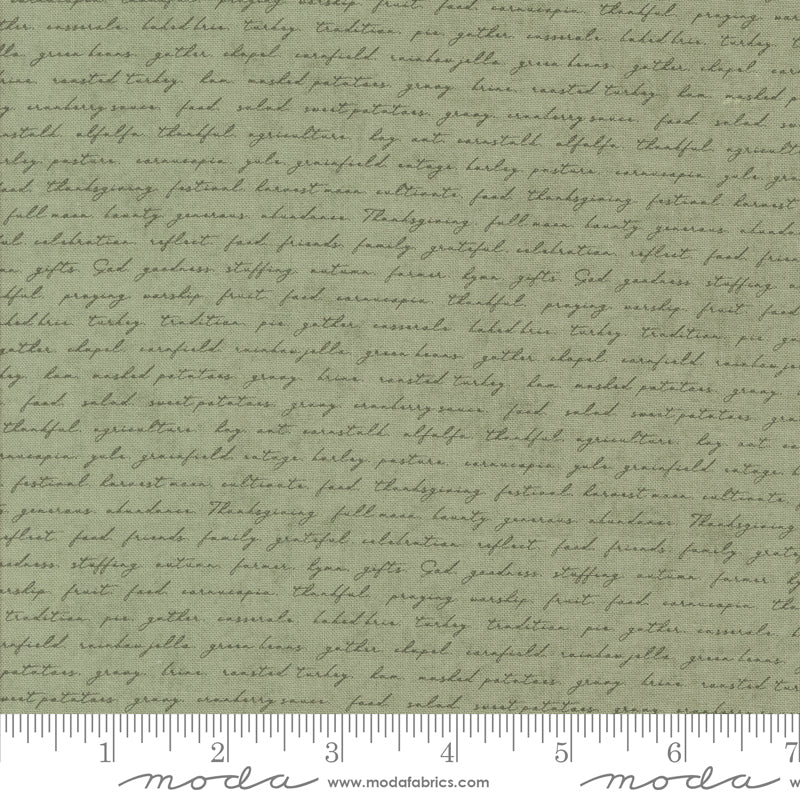 cornucopia. thankful. praying. worship. fruit. food. cornucopia. thankful. praying.
casserole. baked brie. turkey. tradition. pie. gather. casserole. baked brie. turkey.
green beans. gather. chapel. cornfield. rainbow jello. green beans. gather. chapel.
roasted turkey. ham. mashed potatoes. gravy. brine. roasted turkey. ham. mashed
cranberry sauce. food. salad. sweet potatoes. gravy. cranberry sauce. food. salad.
alfalfa. thankful. agriculture. hay. oat. cornstalk. alfalfa. thankful.
pasture. cornucopia. yule. grainfield. cotage. barley. pasture. cornucopia. yule.
food. thanksgiving. festival. harvest moon. cultivate. food. thanksgiving. festival. harvest
full moon. bounty. generous. abundance. Thanksgiving. full moon. bounty. generous.
celebration. reflect. food. friends. family. grateful. celebration. reflect. food.
gifts. God. goodness. stuffing. autumn. farmer. hymn. gifts. God. goodness. stuffing.
praying. worship. fruit. food. cornucopia. thankful. praying. worship. fruit. food.
turkey. tradition. pie. gather. casserole. baked brie. turkey. tradition. pie.
gather. chapel. cornfield. rainbow jello. green beans. gather. chapel. cornfield.
ham. mashed potatoes. gravy. brine. roasted turkey. ham. mashed potatoes. gravy.
food. salad. sweet potatoes. gravy. cranberry sauce. food. salad. sweet potatoes. gravy.
thankful. agriculture. hay. oat. cornstalk. alfalfa. thankful. agriculture. hay. oat.
yule. grainfield. cotage. barley. pasture. cornucopia. yule. grainfield. cotage.
festival. harvest moon. cultivate. food. thanksgiving. festival. harvest moon. cultivate.
generous. abundance. Thanksgiving. full moon. bounty. generous. abundance. Thanksgiving.
reflect. food. friends. family. grateful. celebration. reflect. food. friends. family.
stuffing. autumn. farmer. hymn. gifts. God. goodness. stuffing. autumn. farmer.
fruit. food. cornucopia. thankful. praying. worship. fruit. food. cornucopia.
tradition. pie. gather. casserole. baked brie. turkey. tradition. pie. gather. casserole.
rainbow jello. green beans. gather. chapel. cornfield. rainbow jello. green beans.
potatoes. gravy. brine. roasted turkey. ham. mashed potatoes. gravy. brine. roasted
sweet potatoes. gravy. cranberry sauce. food. salad. sweet potatoes. gravy.
1 2 3 4 5 6 7
moda www.modafabrics.com moda